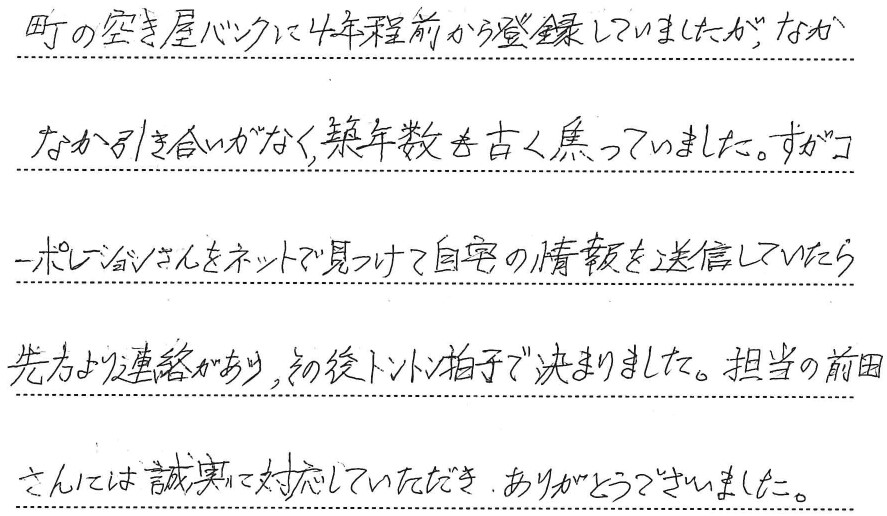 町の空き屋バンクに4年程前から登録していましたが,なか
なか引き合いがなく,築年数も古く焦っていました。すがコ
ーポレーションさんをネットで見つけて自宅の情報を送信していたら
先方より連絡があり,その後トントン拍子で決まりました。担当の前田
さんには誠実に対応していただき.ありがとうございました。